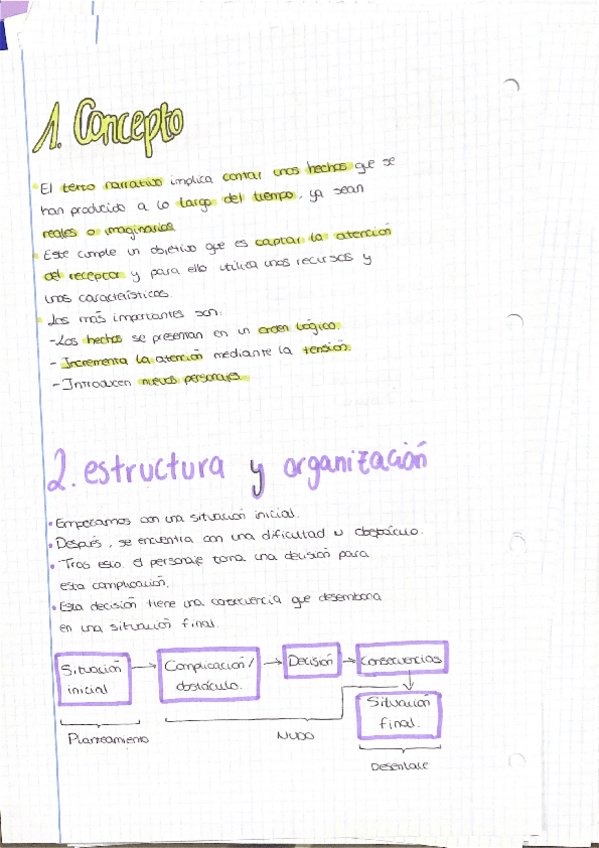 1. Concepto
El texto narrativo implica contar unos hechos que se
han producido a lo largo del tiempo, ya sean
reales o imaginarios
Este cumple un objetivo que es captar la atención
del receptor y para ello utiliza unos recursos y
unos características.
Los más importantes son:
-Los hechos se presentan en un orden lógico.
- Incrementa la atención mediante la tensión.
- Introducen nuevos personajes.
2. estructura y organización
Empezamos con una situación inicial.
Después, se encuentra con una dificultad u obstáculo.
Tras esto, el personaje toma una decisión para
esta complicación.
Esta decisión tiene una consecuencia que desemboca
en una situación final.
Situación inicial → Complicación/ obstáculo. → Decisión → Consecuencias
Situación final.
Planteamiento
Nudo
Desenlace